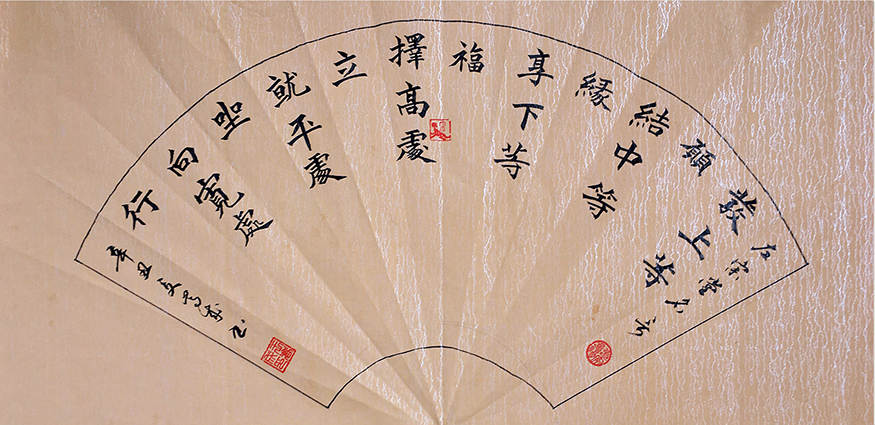 左宗棠名言
發上等
願
結中等
緣
享下等
福
擇高處
立
就平處
坐
向寬處
行
辛丑夏